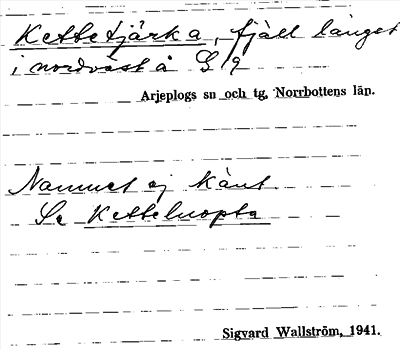 Kettetjärka, fjäll längst
i nordväst å G 9
Arjeplogs sn och tg, Norrbottens län.
Namnet ej känt.
Se Ketteluopta
Sigvard Wallström, 1941.